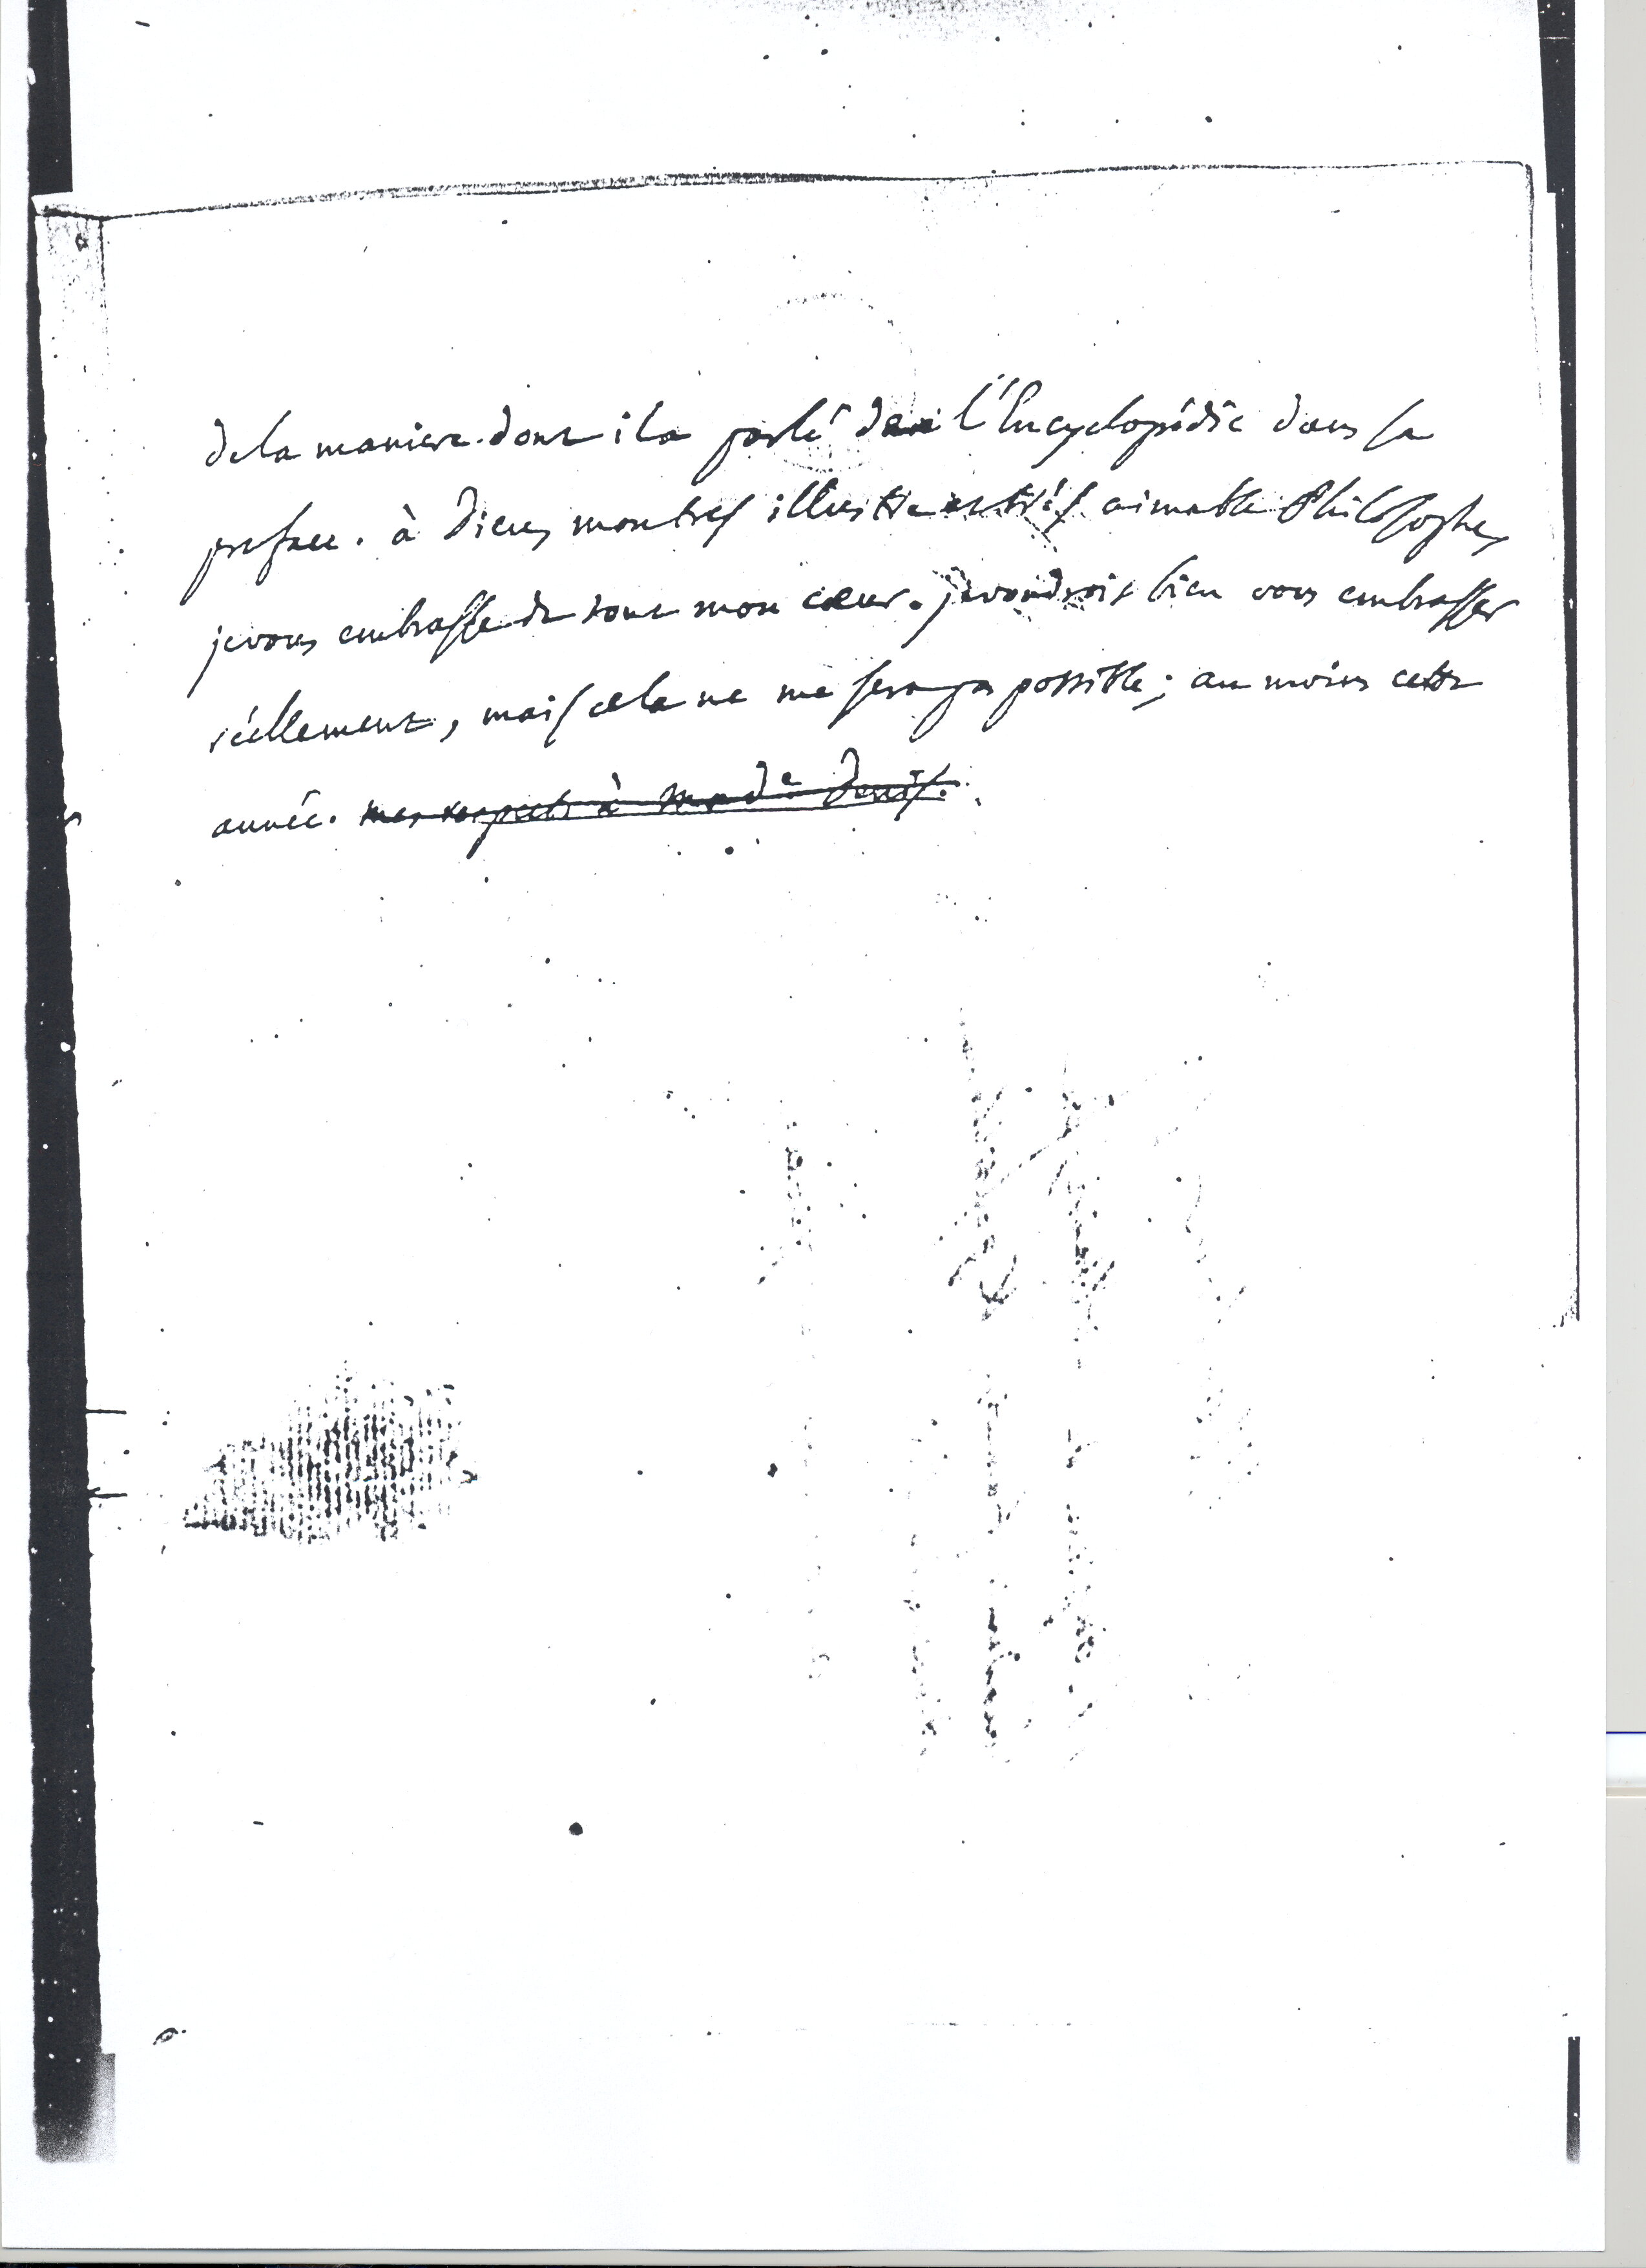 de la maniere dont il a parlé de l'Encyclopédie dans sa
preface. à Dieu, mon tres illustre et très aimable Philosophe,
je vous embrasse de tout mon cœur. je voudrois bien vous embrasser
réellement, mais cela ne me sera pas possible; au moins cette
année. mes respects à Made Denis.